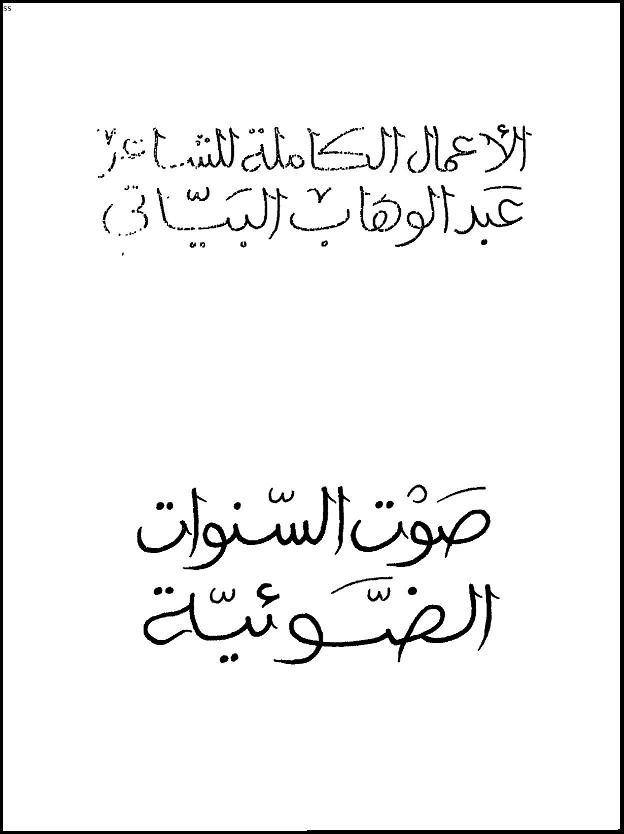 ss
الأعمال الكاملة للشاعر
عَبد الوهاب البَيّاتي
صَوْت السّنوات
الضَّوئيّة